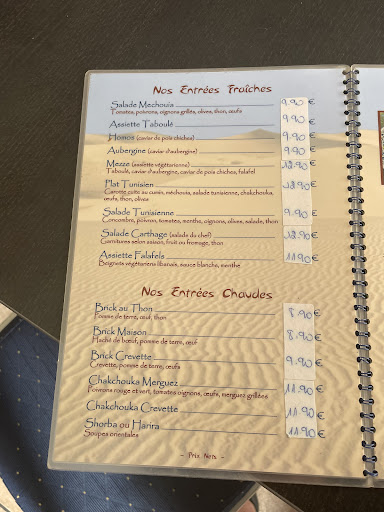 Nos Entrées Fraîches
Salade Mechouia 9.90 €
Tomates, poivrons, oignons grillés, olives, thon, œufs
Assiette Taboulé 9.90 €
Homos (caviar de pois chiches) 9.90 €
Aubergine (caviar d'aubergine) 9.90 €
Mezze (assiette végétarienne) 18.90 €
Taboulé, caviar d'aubergine, caviar de pois chiches, falafel
Plat Tunisien 18.90 €
Carotte cuite au cumin, méchouia, salade tunisienne, chakchouka,
œufs, thon, olives
Salade Tunisienne 9.90 €
Concombre, poivrons, tomates, menthe, oignons, olives, salade, thon
Salade Carthage (salade du chef) 18.90 €
Garnitures selon saison, fruit ou fromage, thon
Assiette Falafels 11.90 €
Beignets végétariens libanais, sauce blanche, menthe
Nos Entrées Chaudes
Brick au Thon 8.90 €
Pomme de terre, œuf, thon
Brick Maison 8.90 €
Haché de bœuf, pomme de terre, œuf
Brick Crevette 9.90 €
Crevette, pomme de terre, œufs
Chakchouka Merguez 11.90 €
Poivrons rouge et vert, tomates oignons, œufs, merguez grillées
Chakchouka Crevette 11.90 €
Shorba ou Harira 11.90 €
Soupes orientales
- Prix Nets -